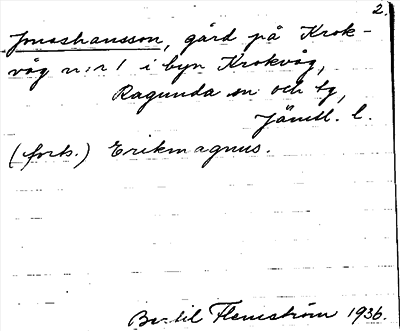 2.
Jmoshansson, gård på Krok-
våg n:r 1 i byn Krokvåg,
Ragunda sn och tg,
Jämtl. l.
(forts.) Erikmagnus.
Bertil Flemström 1936.